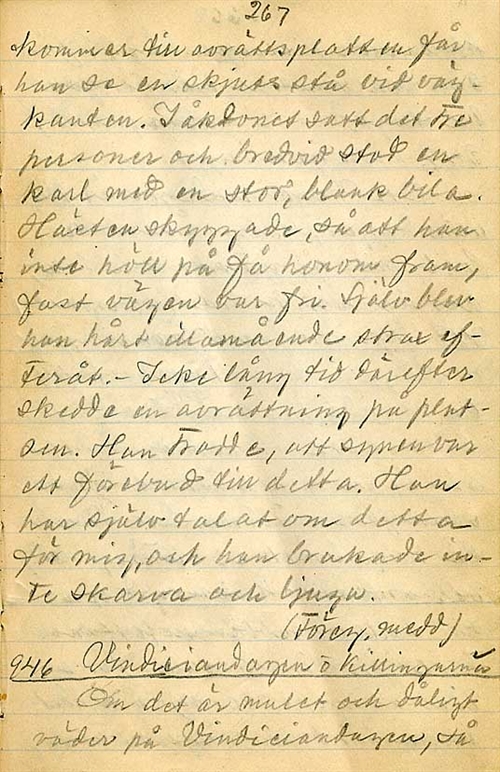 267
kommer till avrättsplatsen får
han se en skjuts stå vid väg-
kanten. I åkdonet satt det tre
personer och bredvid stod en
karl med en stor, blank bila.
Hästen skyggade, så att han
inte höll på få honom fram,
fast vägen var fri. Själv blev
han hårt illamående strax ef-
teråt. - Icke lång tid därefter
skedde en avrättning på plat-
sen. Han trodde, att synen var
ett förebud till detta. Han
har själv talat om detta
för mig, och han brukade in-
te skarva och ljuga.
(Föreg. medd)
946 Vindiciandagen o killingarna
Om det är mulet och dåligt
väder på Vindiciandagen, så